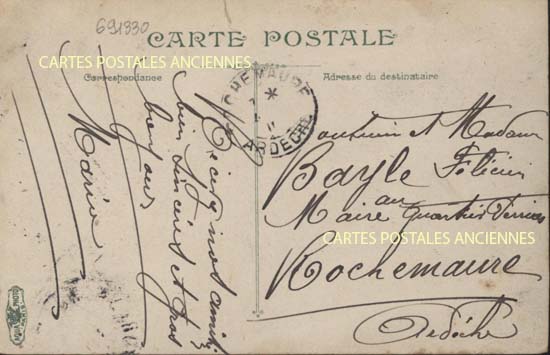 691330
CARTE POSTALE
CARTES POSTALES ANCIENNES
Correspondance
Adresse du destinataire
ROCHEMAURE
ARDECHE
Recevez nos amitiés
sincères et gros
bonjour
Marie
Monsieur et Madame
Bayle Félicien
au
Maire quartier
CARTES POSTALES ANCIENNES
Rochemaure
Ardèche